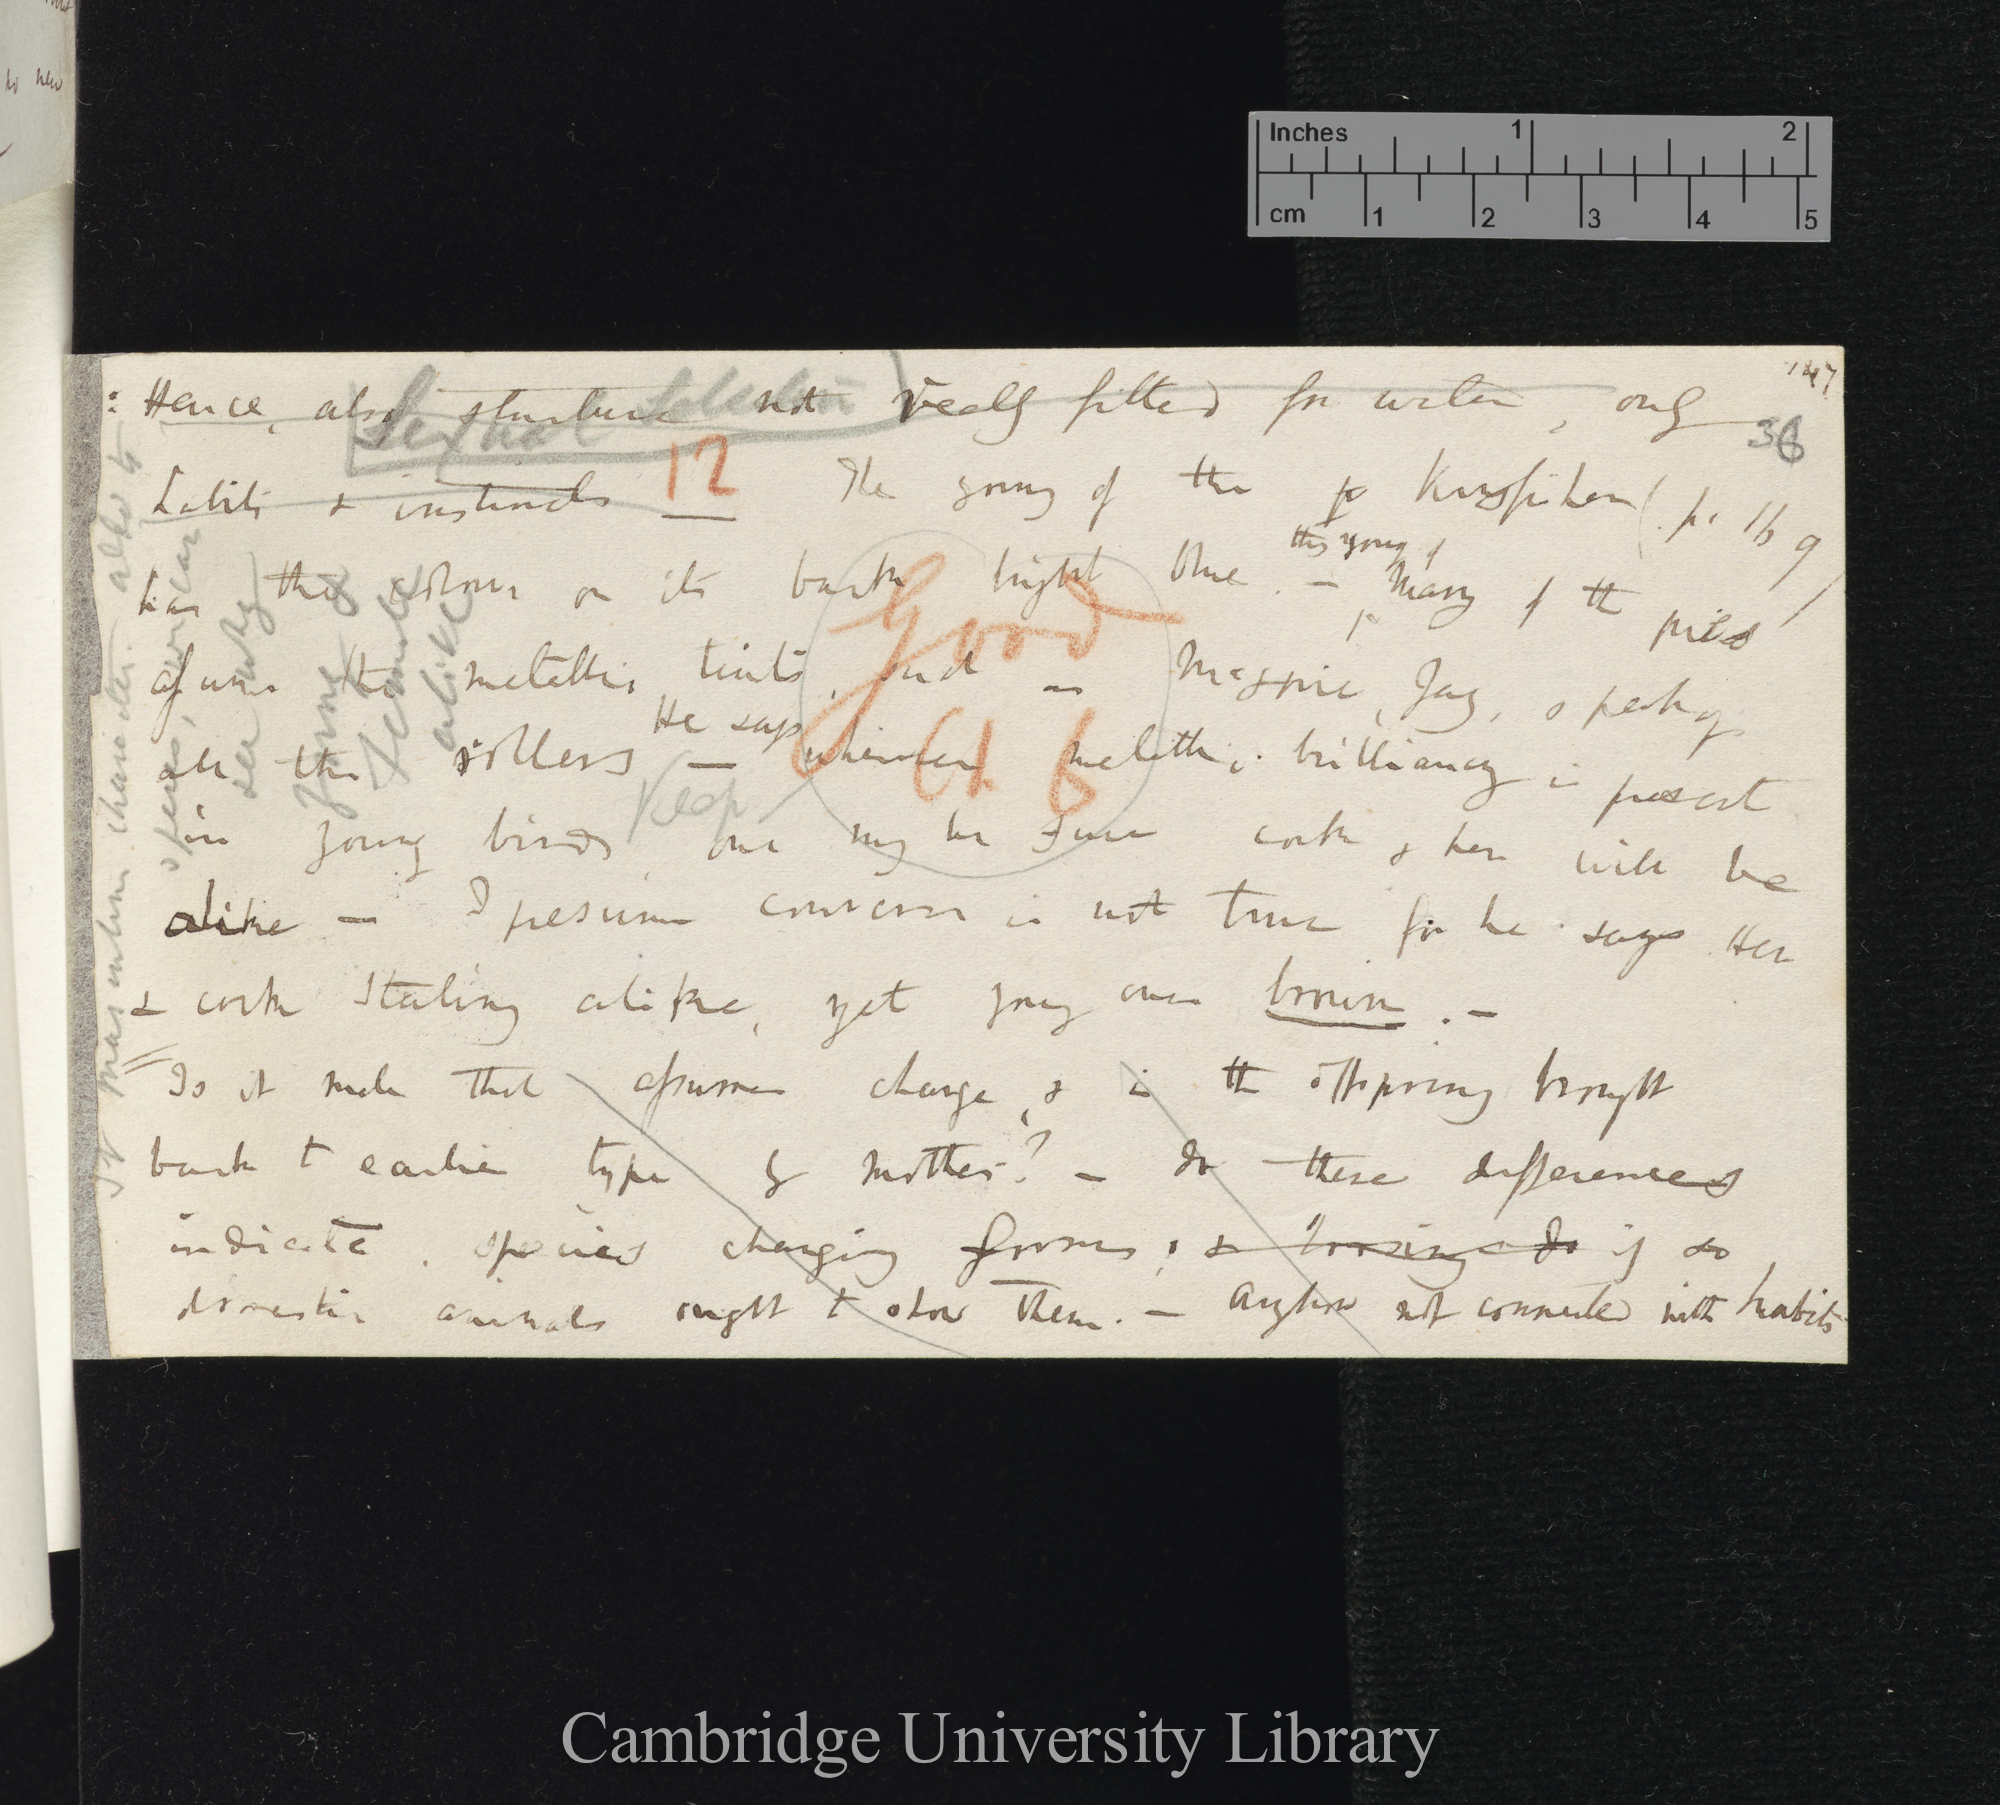 to new
Inches 1 2
cm 1 2 3 4 5
147
36
Sexual Selection
: Hence, also structure not really fitted for water, only
habits & instincts 12 The young of the Kingfisher (p. 169)
has the colour on its back bright blue. — the young of Many of the pies
assume the metallic tints, such as Magpie, Jay, & perhaps
all the rollers — He says whenever metallic brilliancy is present
in young birds one may be sure cock & hen will be
alike — I presume converse is not true for he says Hen
& cock Starling alike, yet young ones brown. —
Is it male that assumes change, & is the offspring brought
back to earlier type by Mother? — do these differences
indicate species changing forms, & loosing do if so
domestic animals ought to show them. — Anyhow not connected with habits
Good
Ch 6
Keep
young &
female
alike
Cambridge University Library